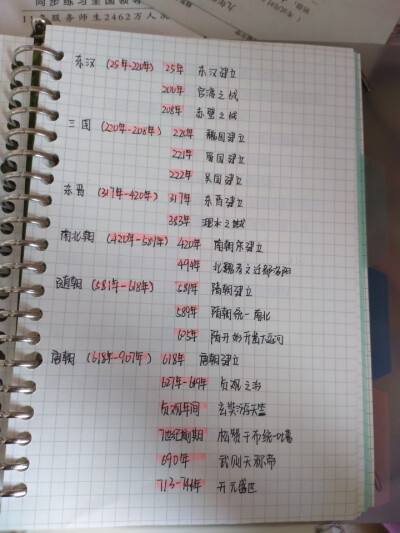 同步练习全国领导
服务师生2462万人
东汉 (25年-220年) 25年 东汉建立
200年 官渡之战
208年 赤壁之战
三国 (220年-208年) 220年 魏国建立
221年 蜀国建立
222年 吴国建立
东晋 (317年-420年) 317年 东晋建立
383年 淝水之战
南北朝 (420年-589年) 420年 南朝宋建立
494年 北魏孝文迁都洛阳
隋朝 (581年-618年) 581年 隋朝建立
589年 隋朝统一南北
605年 隋开始开凿大运河
唐朝 (618年-907年) 618年 唐朝建立
627年-649年 贞观之治
贞观年间 玄奘游天竺
7世纪前期 松赞干布统一吐蕃
690年 武则天称帝
713-741年 开元盛世